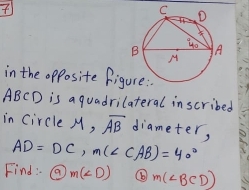 7
C
D
40
B
A
M
in the opposite figure:-
ABCD is a quadrilateral inscribed
in circle M, AB diameter,
AD = DC, m(∠CAB) = 40°
Find:- ⓐ m(∠D) ⓑ m(∠BCD)